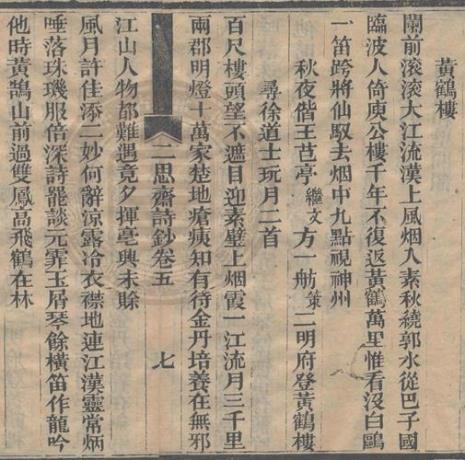 黃鶴樓
闌前滚滚大江流漢上風烟人素秋繞郭水從巴子國
臨波人倚庾公樓千年不復返黃鶴萬里惟看沒白鷗
一笛跨將仙馭去烟中九點視神州
秋夜偕王芑亭繼文方一舫策二明府登黃鶴樓
尋徐道士玩月二首
百尺樓頭望不遮目迎素壁上烟霞一江流月三千里
兩郡明燈十萬家楚地瘡痍知有待金丹培養在無邪
二思齋詩鈔卷五
七
江山人物都難遇竟夕揮亳興未賖
風月許佳添二妙何辭凉露冷衣襟地連江漢靈常炳
唾落珠璣服倍深詩罷談元霏玉屑琴餘橫笛作龍吟
他時黃鵠山前過雙鳳高飛鶴在林